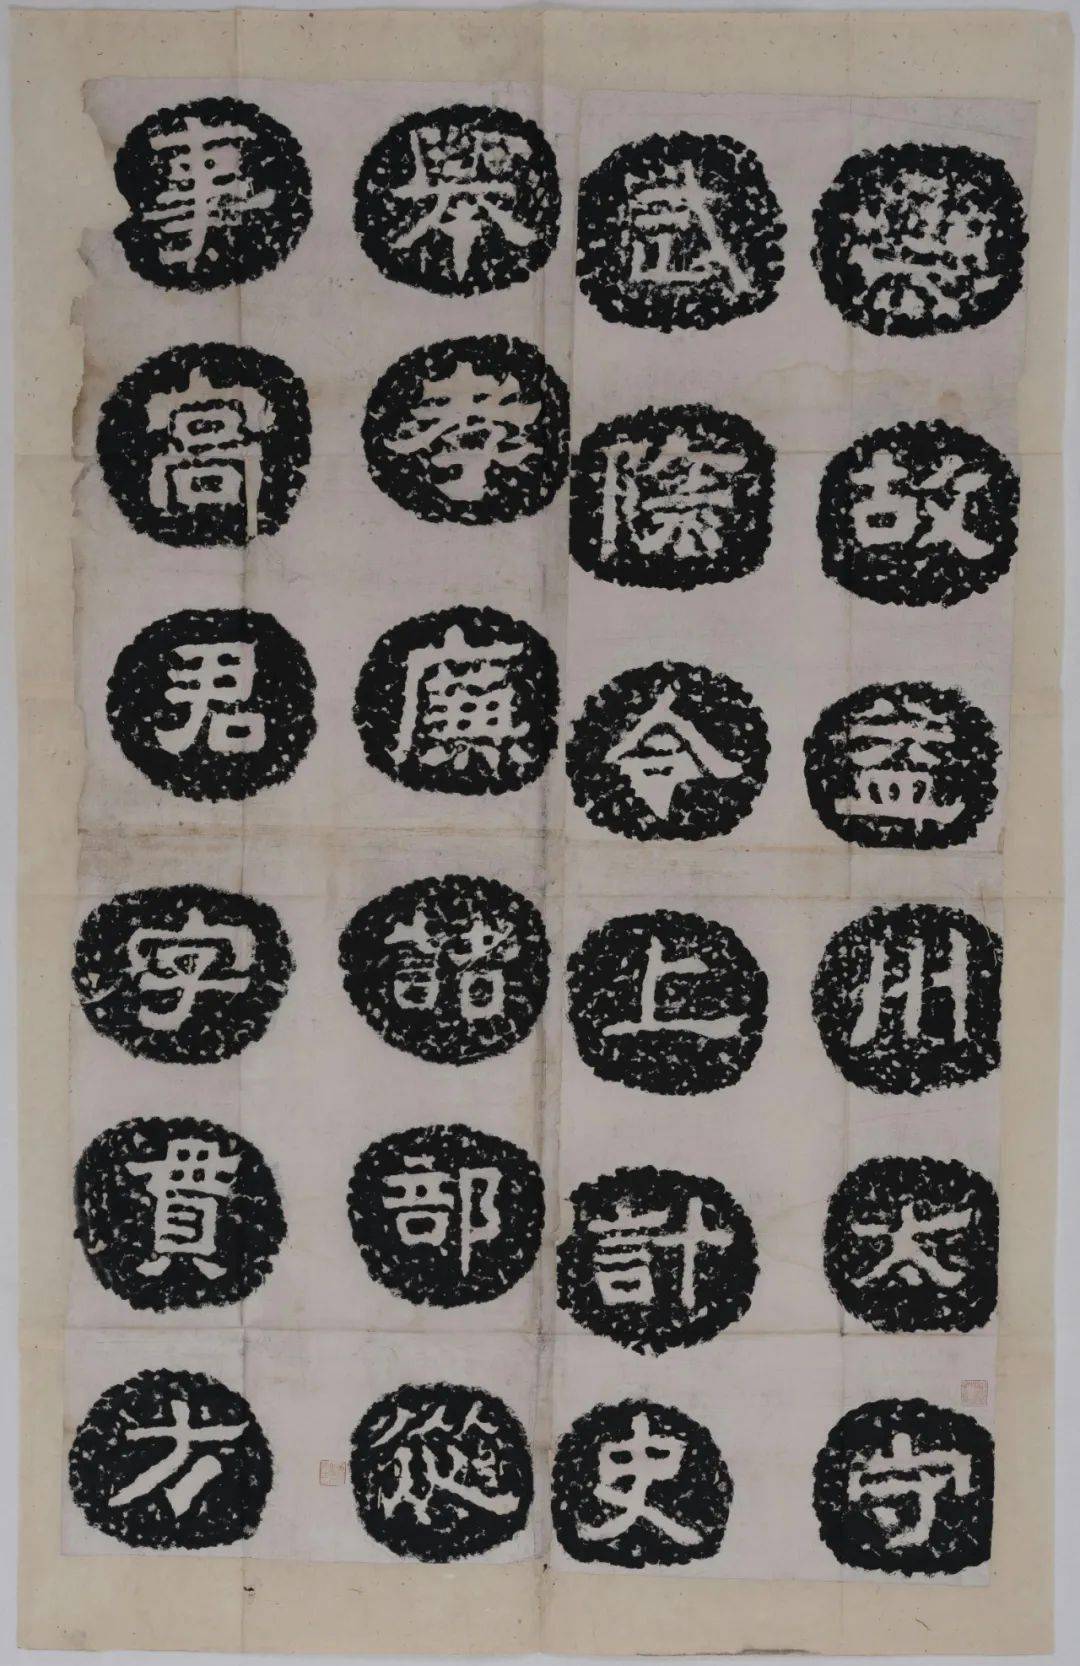 漢故益州太守
武陰令上計史
舉孝廉諸部從
事高君字貫方